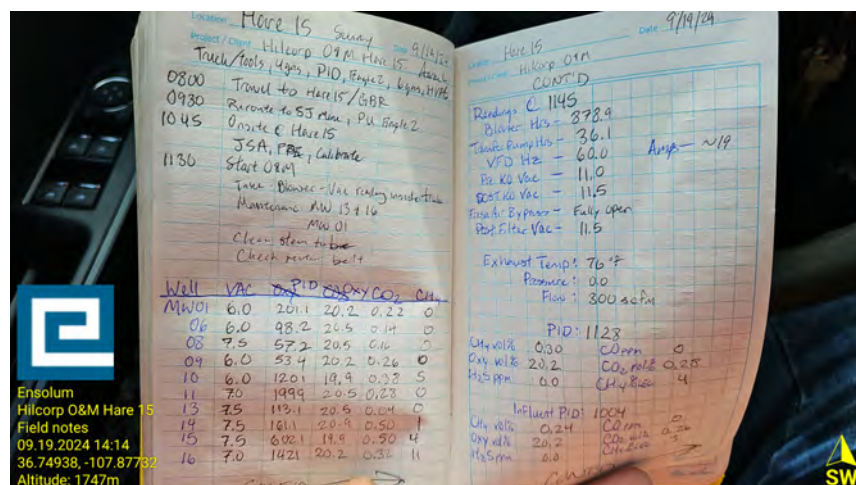 Location Hare 15 Sunny Date 9/19/24
Project / Client Hilcorp O&M Hare 15
Truck/tools, 4gas, PID, Eagle 2, 6gas,
0800 Travel to Hare 15/GBR
0930 Reroute to SJ Mine, PU Eagle 2
1045 Onsite @ Hare 15
JSA, PPE, Calibrate
1130 Start O&M
Take Blower-Vac reading inside
Maintenance MW 13 + 16
MW 01
Clean stem
Check belt
Well VAC PID Oxy CO2 CH4
MW01 6.0 201.1 20.2 0.22 0
06 6.0 98.2 20.5 0.14 0
08 7.5 57.2 20.5 0.16 0
09 6.0 53.4 20.2 0.26 0
10 6.0 1201 19.9 0.38 5
11 7.0 1999 20.5 0.28 0
13 7.5 113.1 20.5 0.04 0
14 7.5 161.1 20.9 0.50 1
15 7.5 602.1 19.9 0.50 4
16 7.0 1421 20.2 0.32 11
Hare 15 Date 9/19/24
Hilcorp O&M
CONT'D
Readings @ 1145
Blower Hrs - 878.9
Transfer Pump Hrs - 36.1
VFD Hz - 60.0 Amps - ~19
Pre KO Vac - 11.0
Post KO Vac - 11.5
Bypass - Fully open
Post Filter Vac - 11.5
Exhaust Temp: 76 °F
Pressure: 0.0
Flow: 300 scfm
PID: 1128
CH4 vol% 0.30 CO ppm 0
Oxy vol% 20.2 CO2 vol% 0.28
H2S ppm 0.0 CH4 %LEL 4
Influent PID: 1004
CH4 vol% 0.24 CO ppm 0
Oxy vol% 20.2 CO2 vol% 0.26
H2S ppm 0.0 CH4 %LEL 3
Ensolum
Hilcorp O&M Hare 15
Field notes
09.19.2024 14:14
36.74938, -107.87732
Altitude: 1747m
SW